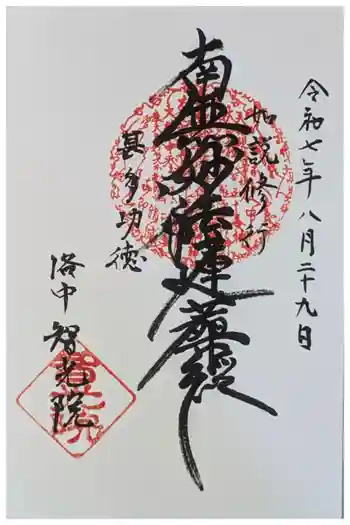 令和七年八月二十九日
如説修行
南無妙法蓮華経
甚多功徳
洛中 智光院